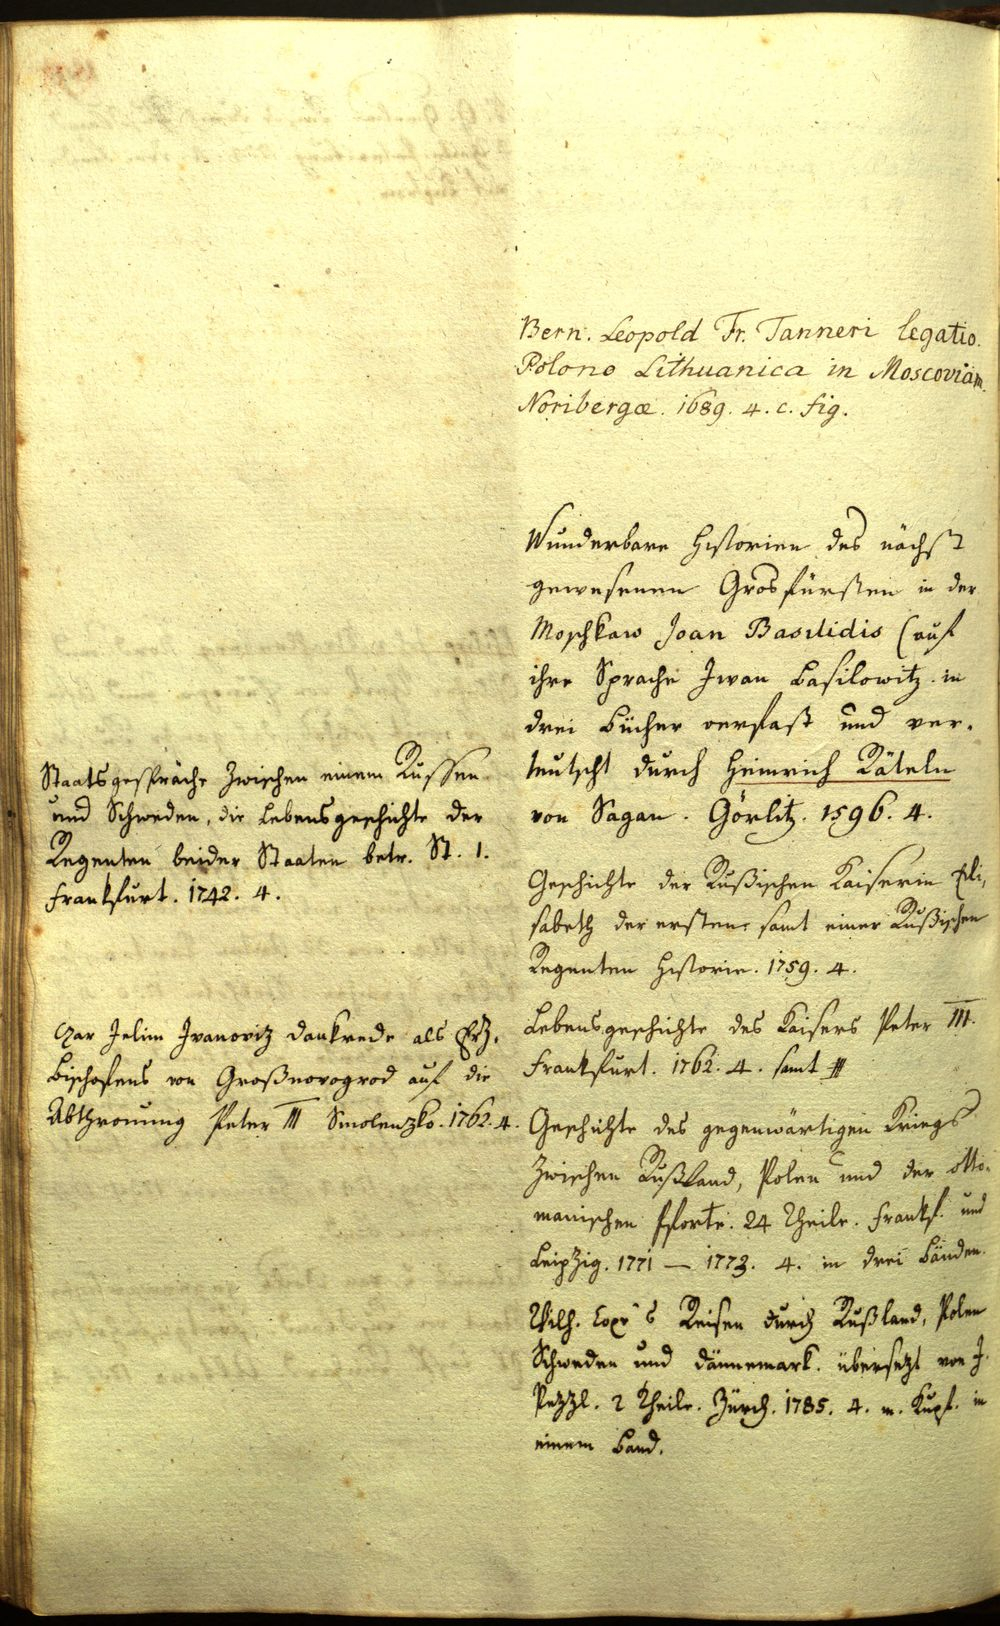 Bern. Leopold Fr. Tanneri legatio.
Polono Lithuanica in Moscoviam
Noribergæ. 1689. 4. c. fig.
Wunderbare Historien des nächst
gewesenen Grosfürsten in der
Moschkaw Joan Basilidis (auf
ihre Sprache Iwan Basilowitz. in
drei Bücher verfast und ver-
teutscht durch Heinrich Räteln
von Sagan. Görlitz. 1596. 4.
Geschichte der Rußischen Kaiserin Eli,
sabeth der ersten, samt einer Rußischen
Regenten Historie. 1759. 4.
Lebensgeschichte des Kaisers Peter III.
Frankfurt. 1762. 4. samt
Geschichte des gegenwärtigen Kriegs
zwischen Rußland, Polen und der Otto-
manischen Pforte. 24 Theile. Frankf. und
Leipzig. 1771 – 1773. 4. in drei Bänden.
Wilh. Coxe's Reisen durch Rußland, Polen
Schweden und Dännemark. übersezt von J.
Pezzl. 2 Theile. Zürch. 1785. 4. m. Kupf. in
einem Band.
Staatsgespräche zwischen einem Russen
und Schweden, die Lebensgeschichte der
Regenten beider Staaten betr. St. 1.
Frankfurt. 1742. 4.
Ivanoviz Dankrede als Erz,
Bischofens von Großnovogrod auf die
Abthronung Peter III Smolenzko. 1762. 4.